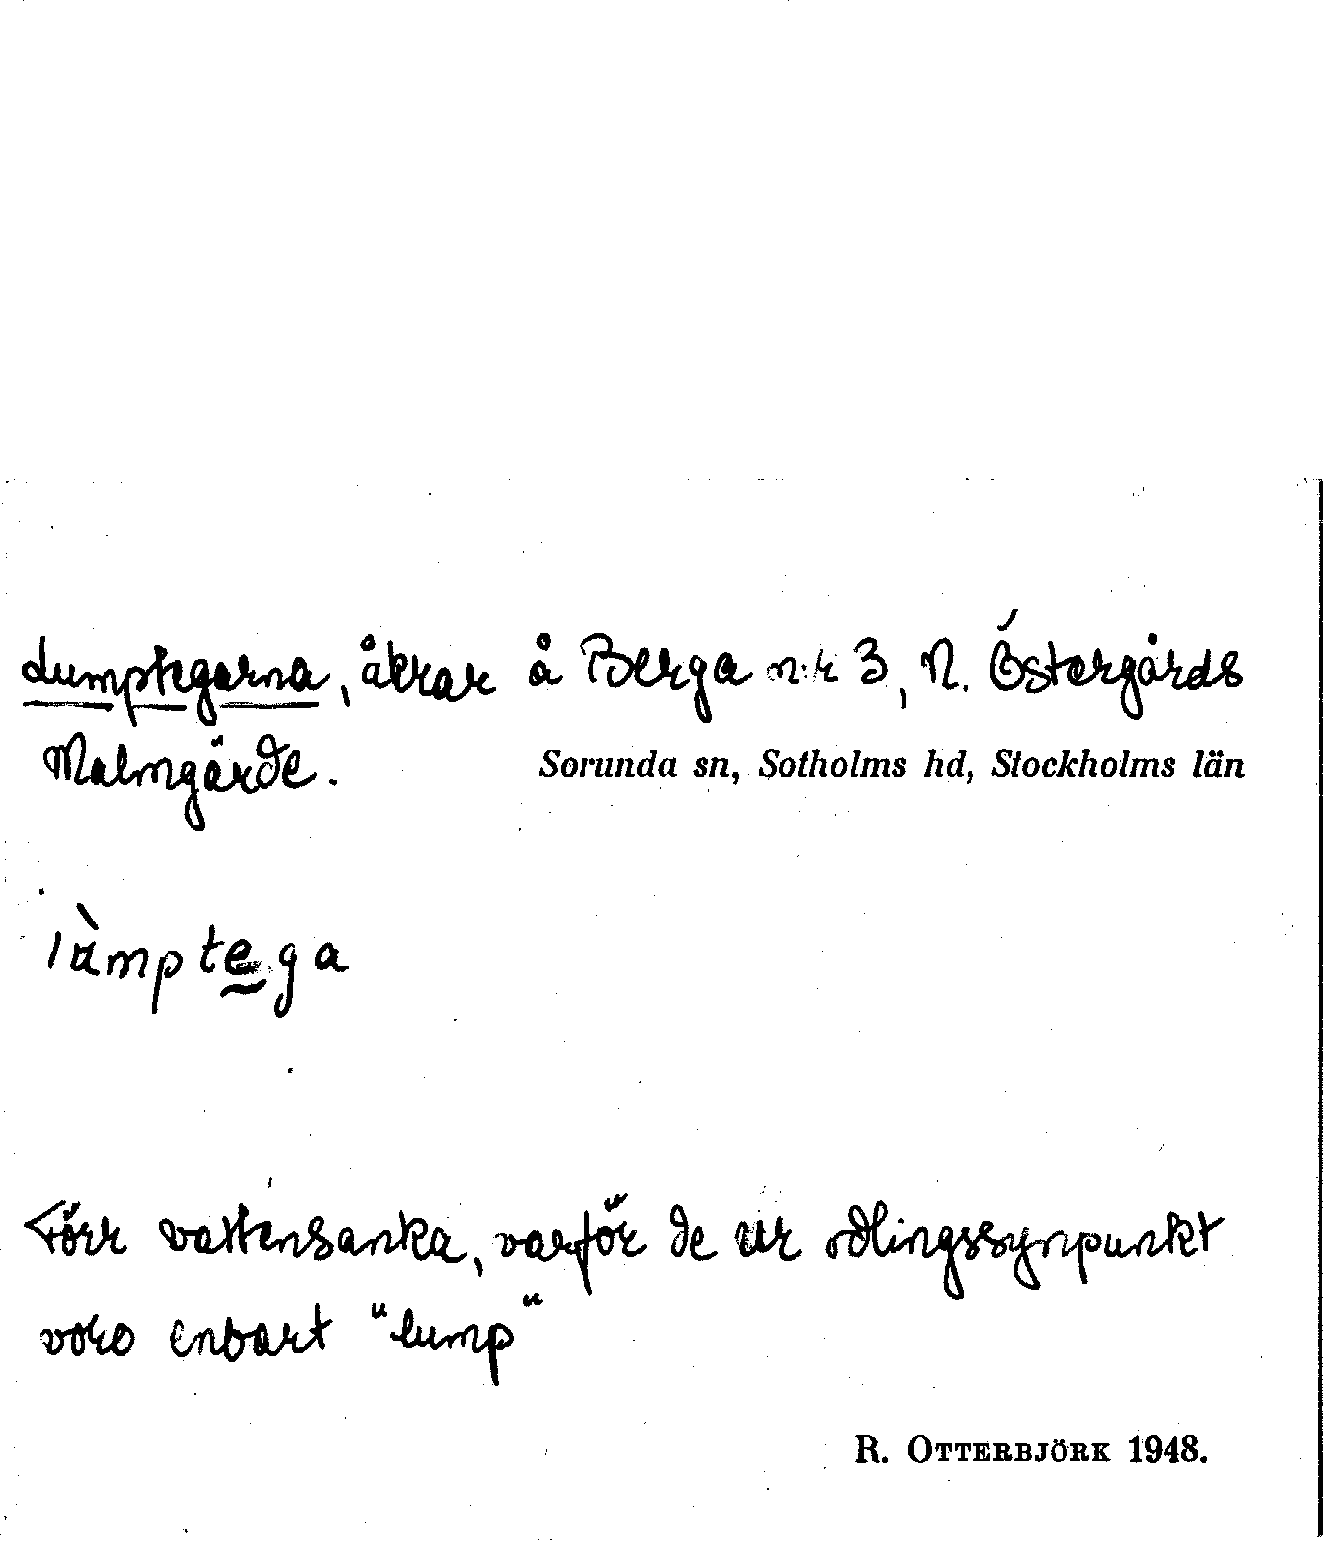 Lumptegarna, åkrar å Berga n:r 3, N. Östergårds
Malmgärde.
Sorunda sn, Sotholms hd, Stockholms län
lùmptega
Förr vattensanka, varför de ur odlingssynpunkt
voro enbart "lump"
R. OTTERBJÖRK 1948.